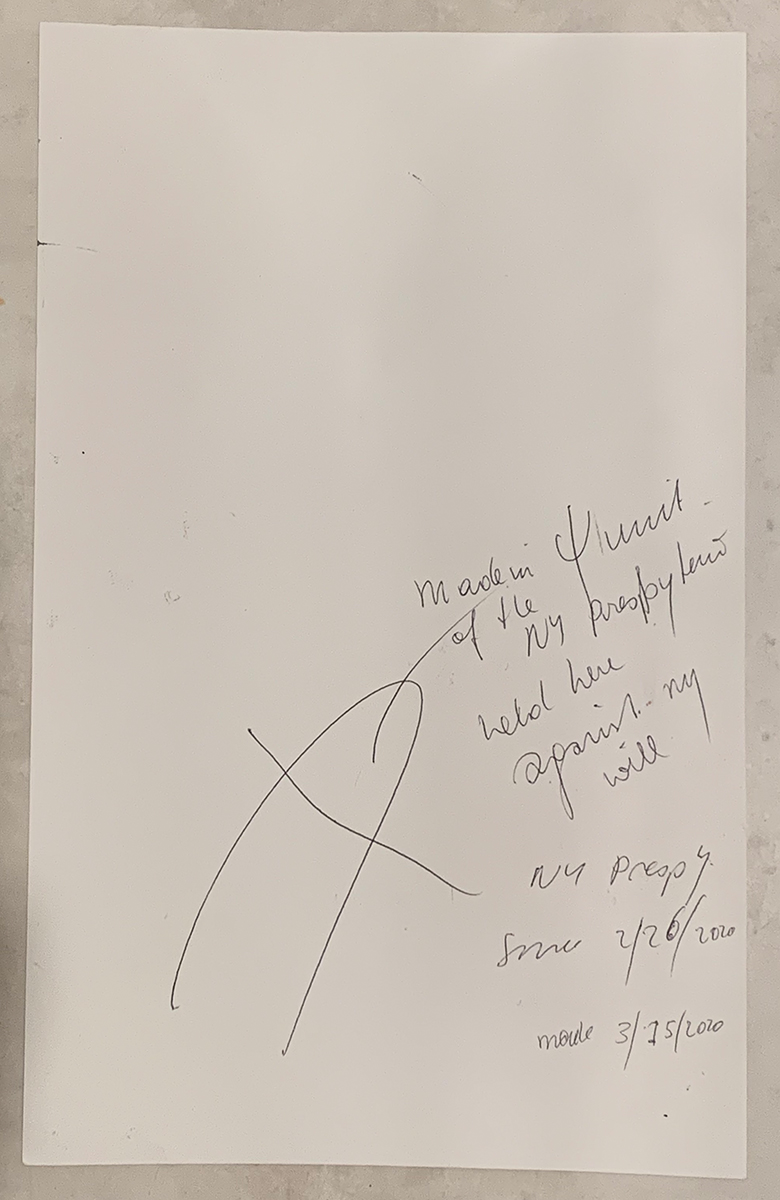 Made in Ψ unit
of the
NY Prespyterio
held here
against my
will
NY Prespy.
Since 2/26/2020
made 3/15/2020